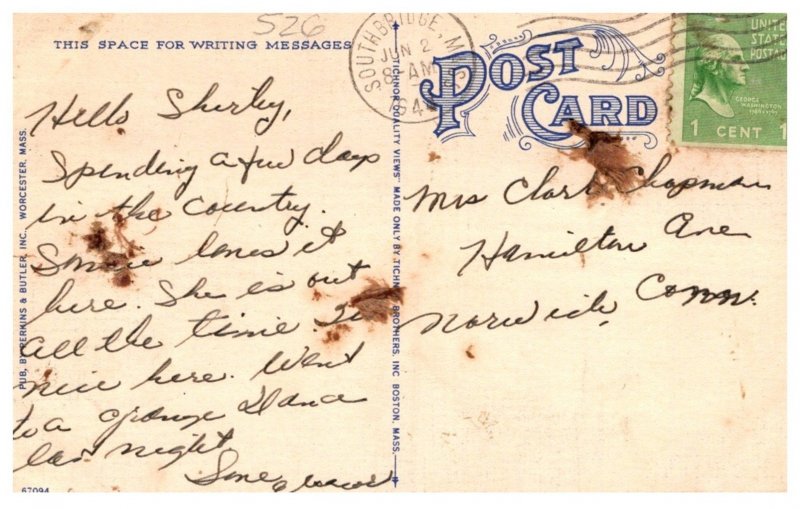 526
THIS SPACE FOR WRITING MESSAGES
SOUTHBRIDGE, M
JUN 2
8 AM
194
POST CARD
UNITED
STATES
POSTAGE
GEORGE
WASHINGTON
1 CENT 1
Hello Shirley,
Spending a few days
in the country.
loves it
here. She is out
all the time.
nice here. Went
to a grange dance
las night
PUB. BY PERKINS & BUTLER, INC., WORCESTER, MASS.
TICHNOR QUALITY VIEWS MADE ONLY BY TICHNOR BROTHERS, INC. BOSTON, MASS.
Mrs Clark Chapman
Hamilton Ave
Norwich, Conn.
67094